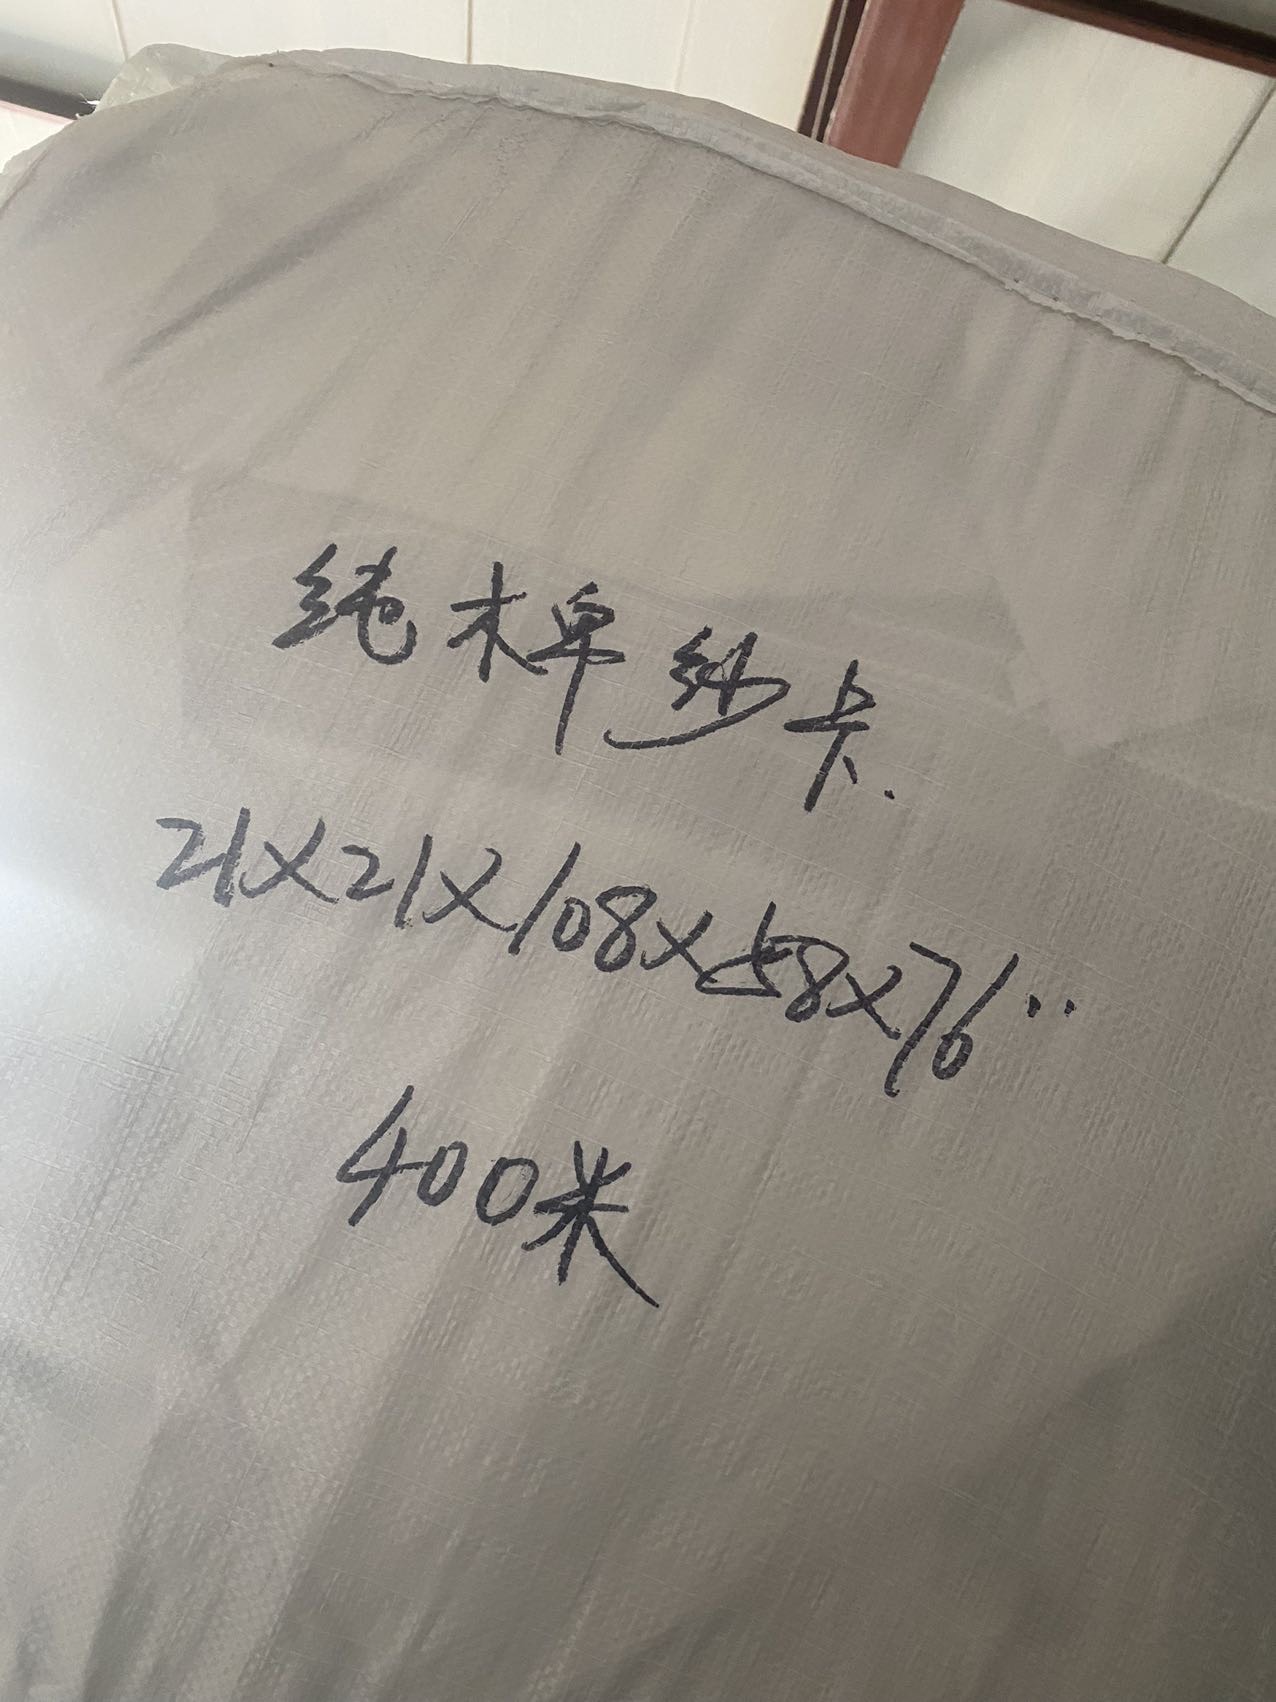 纯棉纱卡.
21X21X108X58X76"
400米